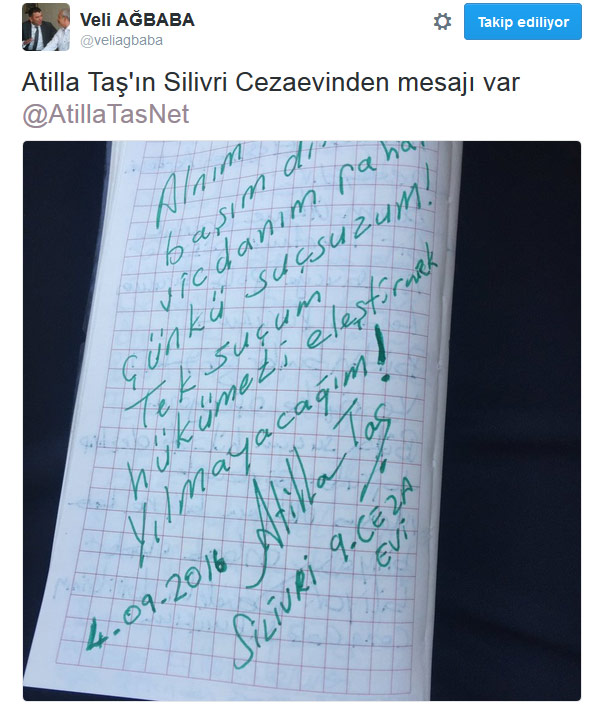 Veli AĞBABA
@veliagbaba
Takip ediliyor
Atilla Taş'ın Silivri Cezaevinden mesajı var
@AtillaTasNet
Alnım
başım di
vicdanım raha
Çünkü suçsuzum!
Tek suçum
hükümeti eleştirmek
Yılmayacağım!
Atilla Taş
4.09.2016
SiLiVRi 9.CEZA
EVi